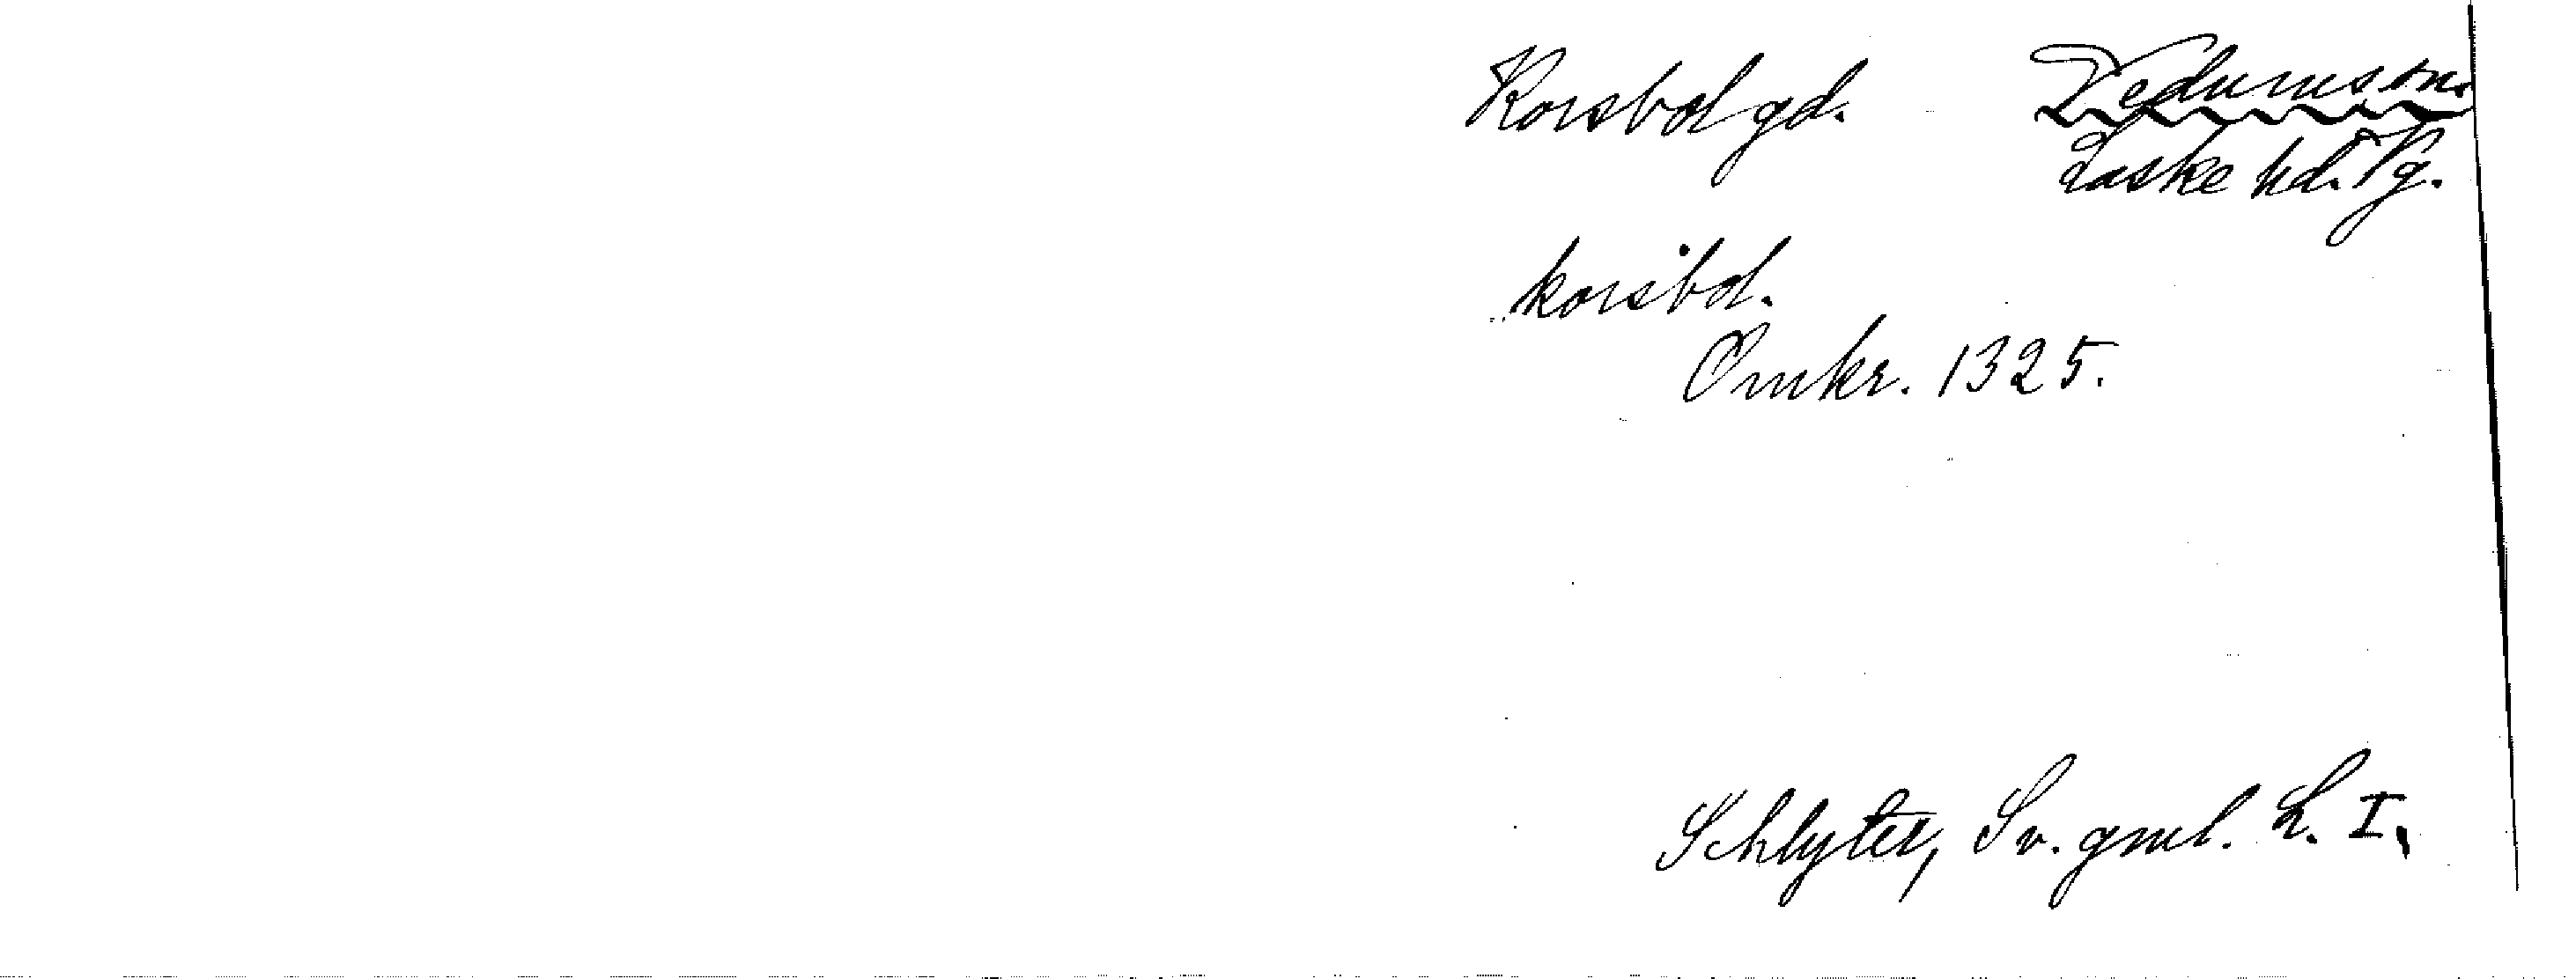 Korsbol gd. Vedums sn.
Laske hd. Vg.
korsbol.
Omkr. 1325.
Schlyter, Sv. gml. L. I.